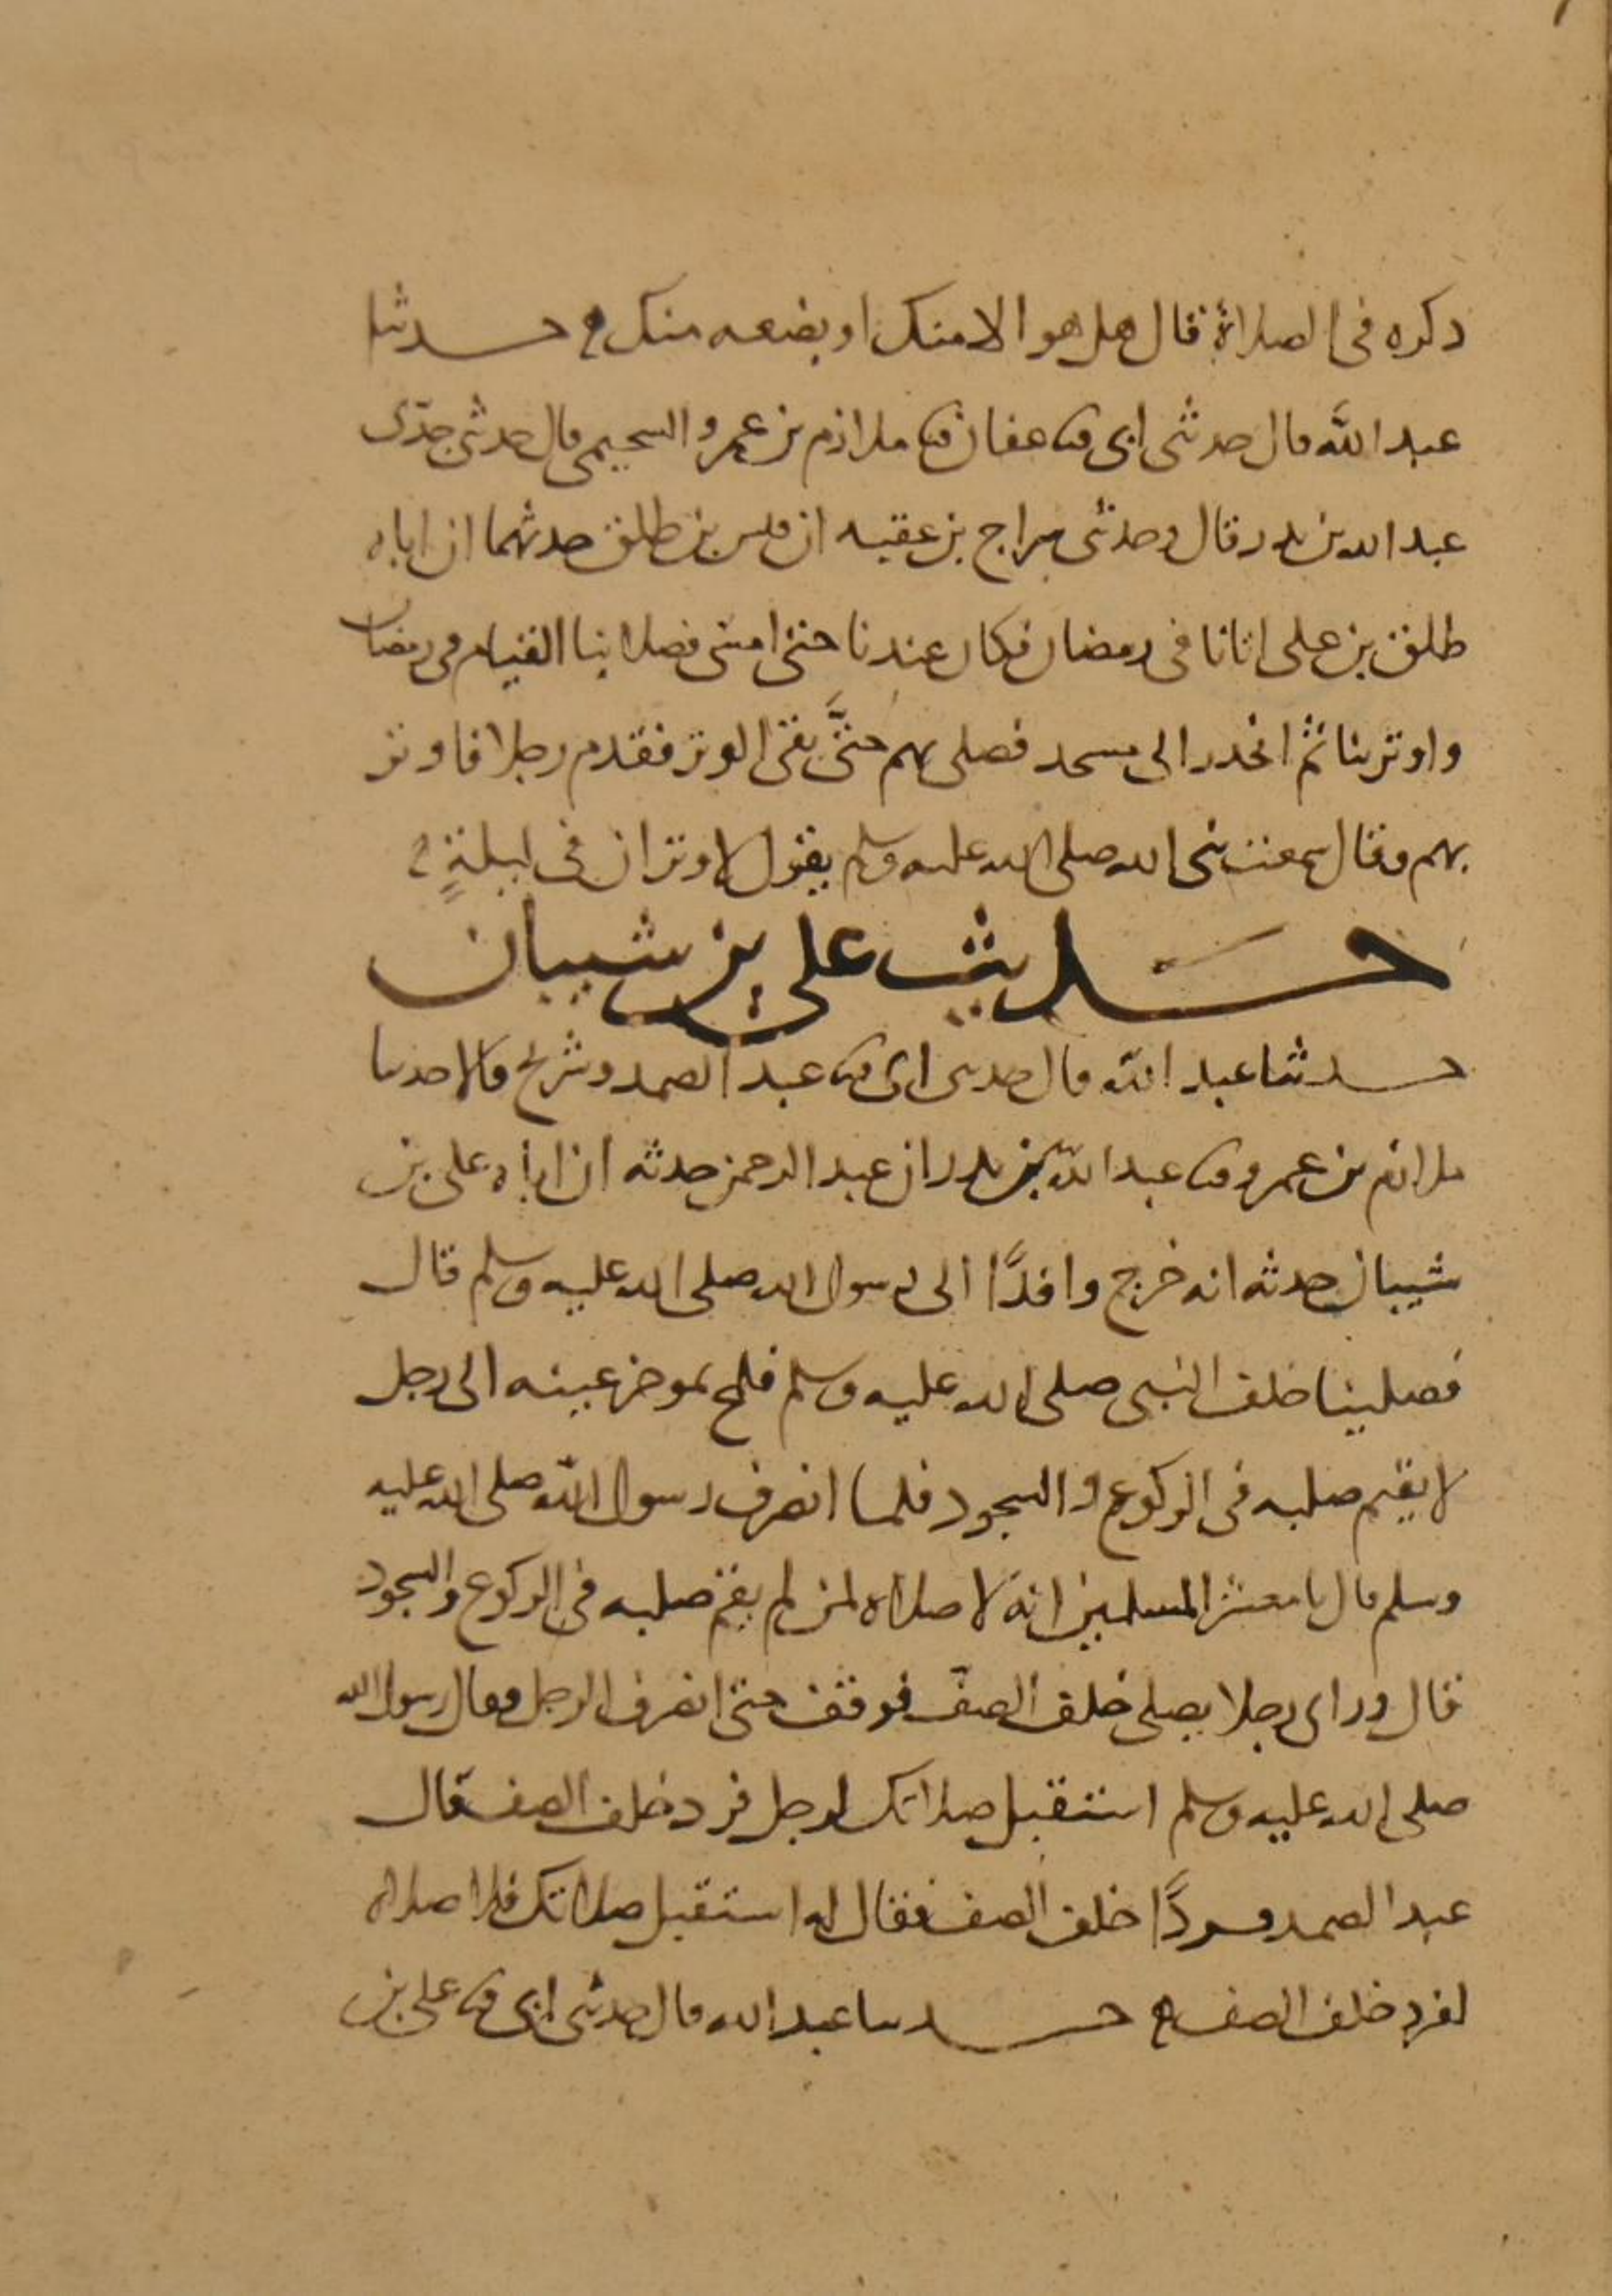 ذكره في الصلاة قال هل هو الا منك او بضعه منك حدثنا
عبد الله قال حدثني ابي ثنا عفان ثنا ملازم بن عمرو السحيمي قال حدثني جدي
عبد الله بن بدر قال وحدثني سراج بن عقبه ان قيس بن طلق حدثهما ان اباه
طلق بن علي اتانا في رمضان فكان عندنا حتى امسى فصلا بنا القيام في رمضان
واوتر بنا ثم انحدر الى مسجد فصلى بهم حتى بقى الوتر فقدم رجلا فاوتر
بهم وقال سمعت نبي الله صلى الله عليه وسلم يقول لا وتران في ليلةٍ
حديث علي بن شيبان
حدثنا عبد الله قال حدثني ابي ثنا عبد الصمد وشريح قالا حدثنا
ملازم بن عمرو ثنا عبد الله بن بدر ان عبد الرحمن حدثه ان اباه علي بن
شيبان حدثه انه خرج وافدًا الى رسول الله صلى الله عليه وسلم قال
فصلينا خلف النبي صلى الله عليه وسلم فلمح بموخر عينه الى رجل
لا يقيم صلبه في الركوع والسجود فلما انصرف رسول الله صلى الله عليه
وسلم قال يا معشر المسلمين انه لا صلاه لمن لم يقم صلبه في الركوع والسجود
قال وراى رجلا يصلي خلف الصف فوقف حتى انصرف الرجل فقال رسول الله
صلى الله عليه وسلم استقبل صلاتك لرجل فرد خلف الصف قال
عبد الصمد فردًا خلف الصف فقال له استقبل صلاتك فلا صلاه
لفرد خلف الصف حدثنا عبد الله قال حدثني ابي ثنا علي بن